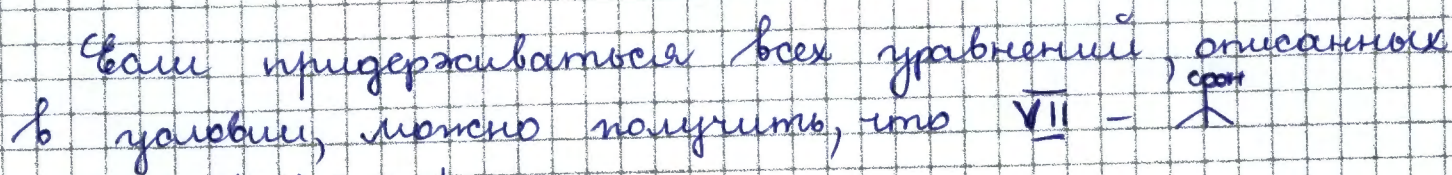 Если придерживаться всех уравнений, описанных
в условии, можно получить, что VII –